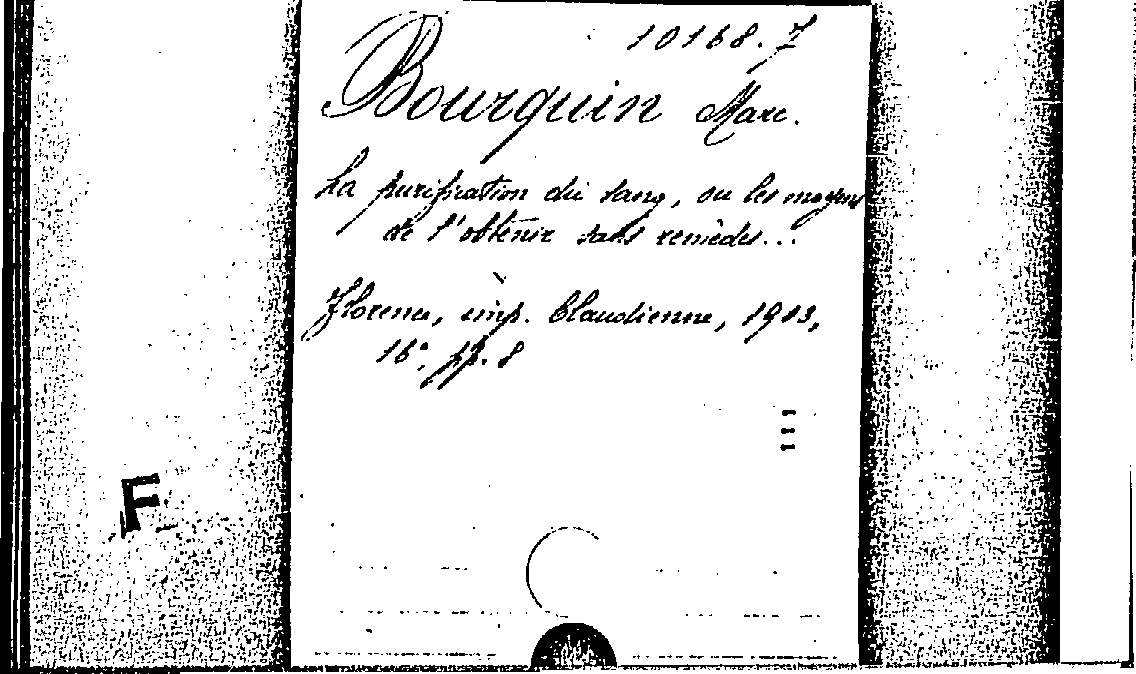 10168.7
Bourquin Marc.
La purification du sang, ou les moyens
de l'obtenir sans remèdes...
Florence, imp. Claudienne, 1913,
16°. pp. 8
F